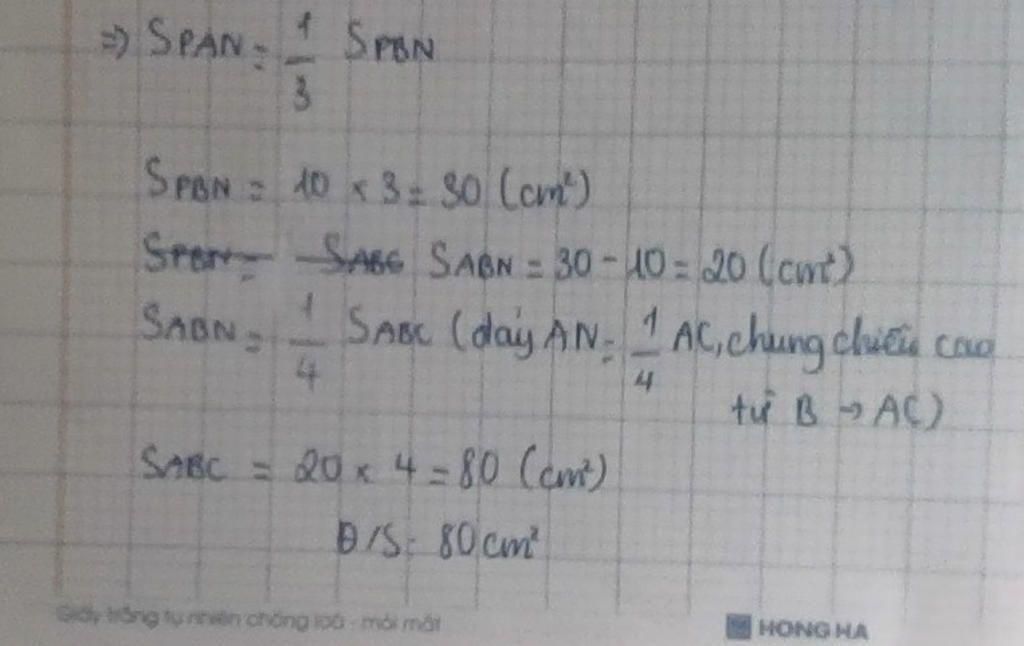 => SPAN = 1/3 SPBN
SPBN = 10 x 3 = 30 (cm²)
SPBN = SABC SABN = 30 - 10 = 20 (cm²)
SABN = 1/4 SABC (đáy AN = 1/4 AC, chung chiều cao
từ B → AC)
SABC = 20 x 4 = 80 (cm²)
Đ/S: 80cm²
Giấy trắng tự nhiên chống loá - mỏi mắt
HONG HA